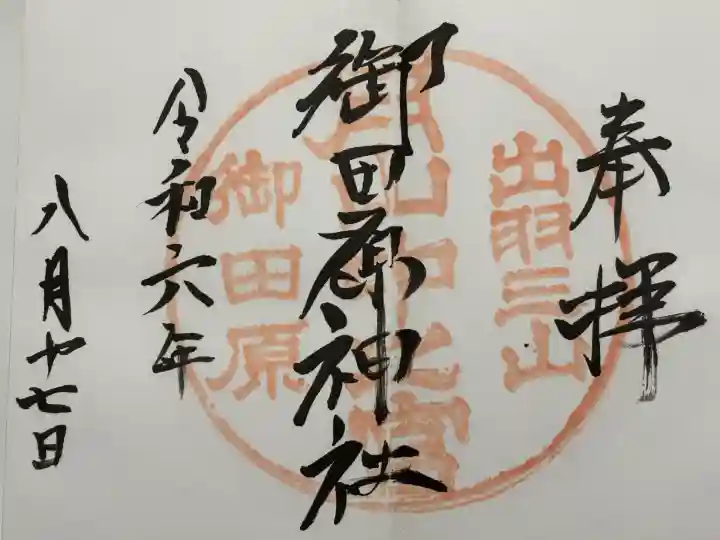 奉拝
出羽三山
月山中之宮
御田原神社
御田原
令和六年
八月十七日